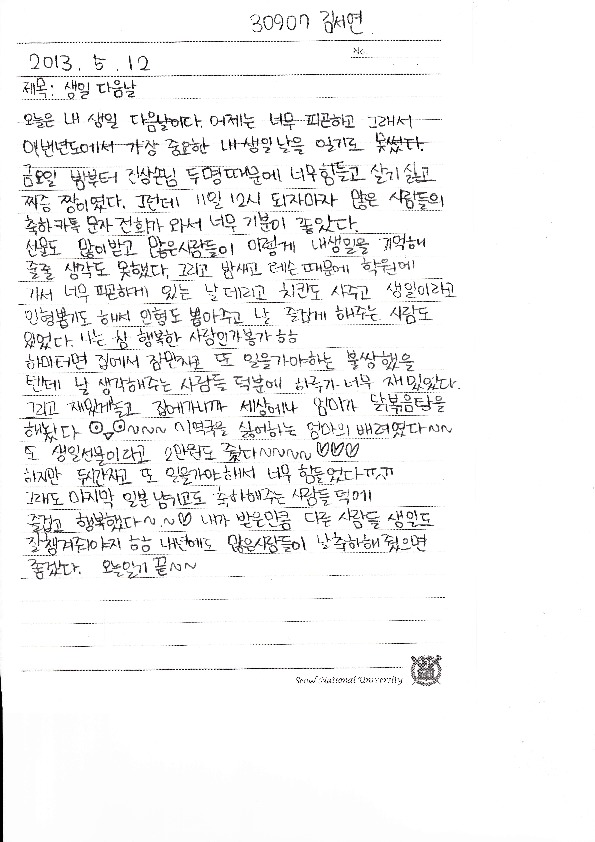 30907 김서연
No.
2013. 5. 12
제목: 생일 다음날
오늘은 내 생일 다음날이다. 어제는 너무 피곤하고 그래서
이번년도에서 가장 중요한 내생일날을 일기로 못썼다.
금요일 밤부터 진상손님 두명때문에 너무힘들고 살기싫고
짜증 짱이였다. 그런데 11일 12시 되자마자 많은 사람들의
축하카톡 문자 전화가 와서 너무 기분이 좋았다.
선물도 많이받고 많은사람들이 이렇게 내생일을 기억해
줄줄 생각도 못했다. 그리고 밤새고 레슨 때문에 학원에
가서 너무 피곤하게 있는 날 데리고 치킨도 사주고 생일이라고
인형뽑기도 해서 인형도 뽑아주고 날 즐겁게 해주는 사람도
있었다. 나는 참 행복한 사람인가보가 ㅎㅎ
하마터면 집에서 잠만자고 또 일을가야하는 불쌍했을
텐데 날 생각해주는 사람들 덕분에 하루가 너무 재밌었다.
그리고 재밌게놀고 집에가니까 세상에나 엄마가 닭볶음탕을
해놨다 ~~~ 미역국을 싫어하는 엄마의 배려였다 ~~
또 생일선물이라고 2만원도 줬다~~~~~ ♡♡♡
하지만 두시간자고 또 일을가야해서 너무 힘들었다ㅠㅠ
그래도 마지막 일분 남기고도 축하해주는 사람들 덕에
즐겁고 행복했다~~♡ 내가 받은만큼 다른 사람들 생일도
잘챙겨줘야지 ㅎㅎ 내년에도 많은사람들이 날축하해 줬으면
좋겠다. 오늘일기 끝~~
Seoul National University